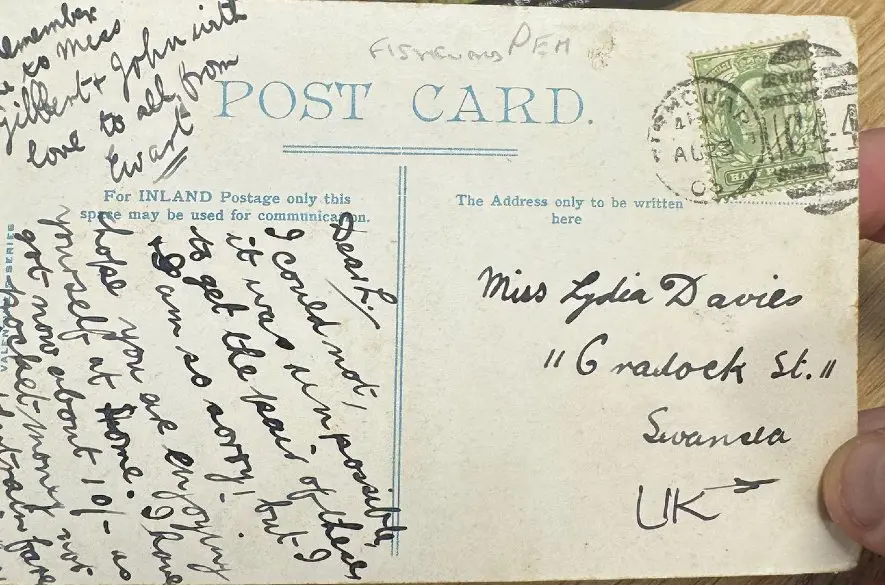 remember
to Miss
Gilbert & John with
love to all, from
Ewart
FISHGUARD PEM
POST CARD.
For INLAND Postage only this
space may be used for communication.
The Address only to be written
here
Dear L./
I could not,
it was un-possible,
to get the pair of these,
I am so sorry! but I
hope you are enjoying
yourself at Home. I have
got now about 10/- as
pocket-money not
train fare
Miss Lydia Davies
11 Cradock St.
Swansea
UK